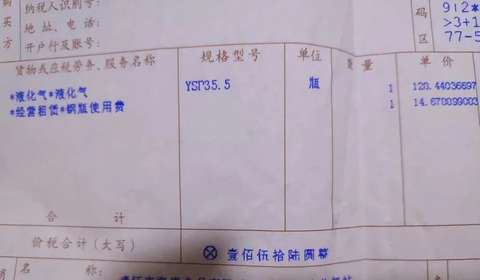 购买方
纳税人识别号:
地址、电话:
开户行及账号:
码区
9:2*
>3+1
77-5
货物或应税劳务、服务名称 规格型号 单位 数量 单价
*液化气*液化气 YSP35.5 瓶 1 128.44036697
*经营租赁*钢瓶使用费 1
合计
价税合计(大写) ⊗壹佰伍拾陆圆整
名称: